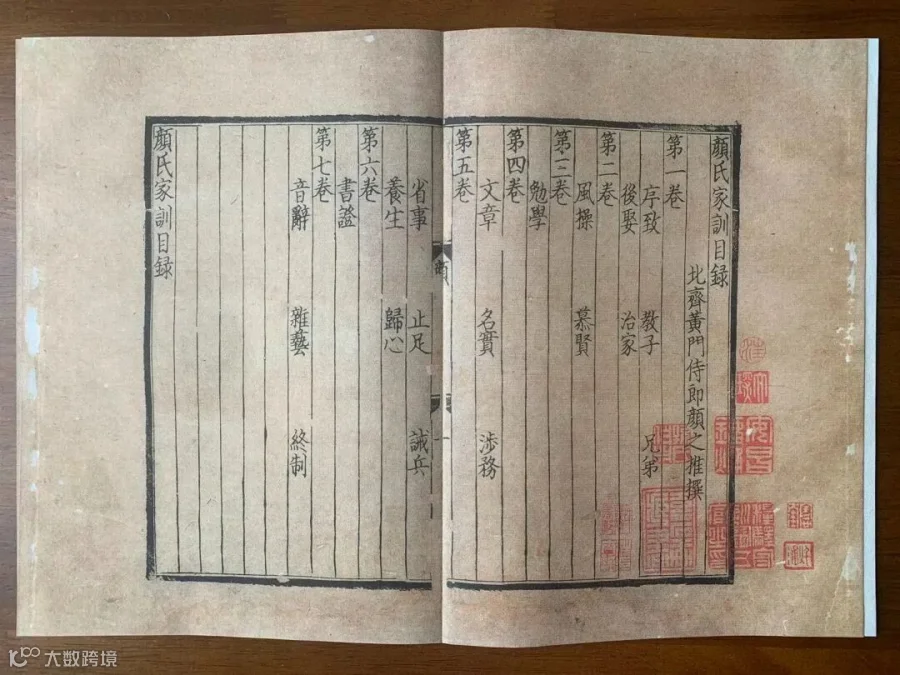 顏氏家訓目録
北齊黃門侍郎顏之推撰
第一卷
序致 教子 兄弟
後娶 治家
第二卷
風操 慕賢
第三卷
勉學
第四卷
文章 名實 涉務
第五卷
省事 止足 誡兵
養生 歸心
第六卷
書證
第七卷
音辭 雜藝 終制
顏氏家訓目録
大数跨境